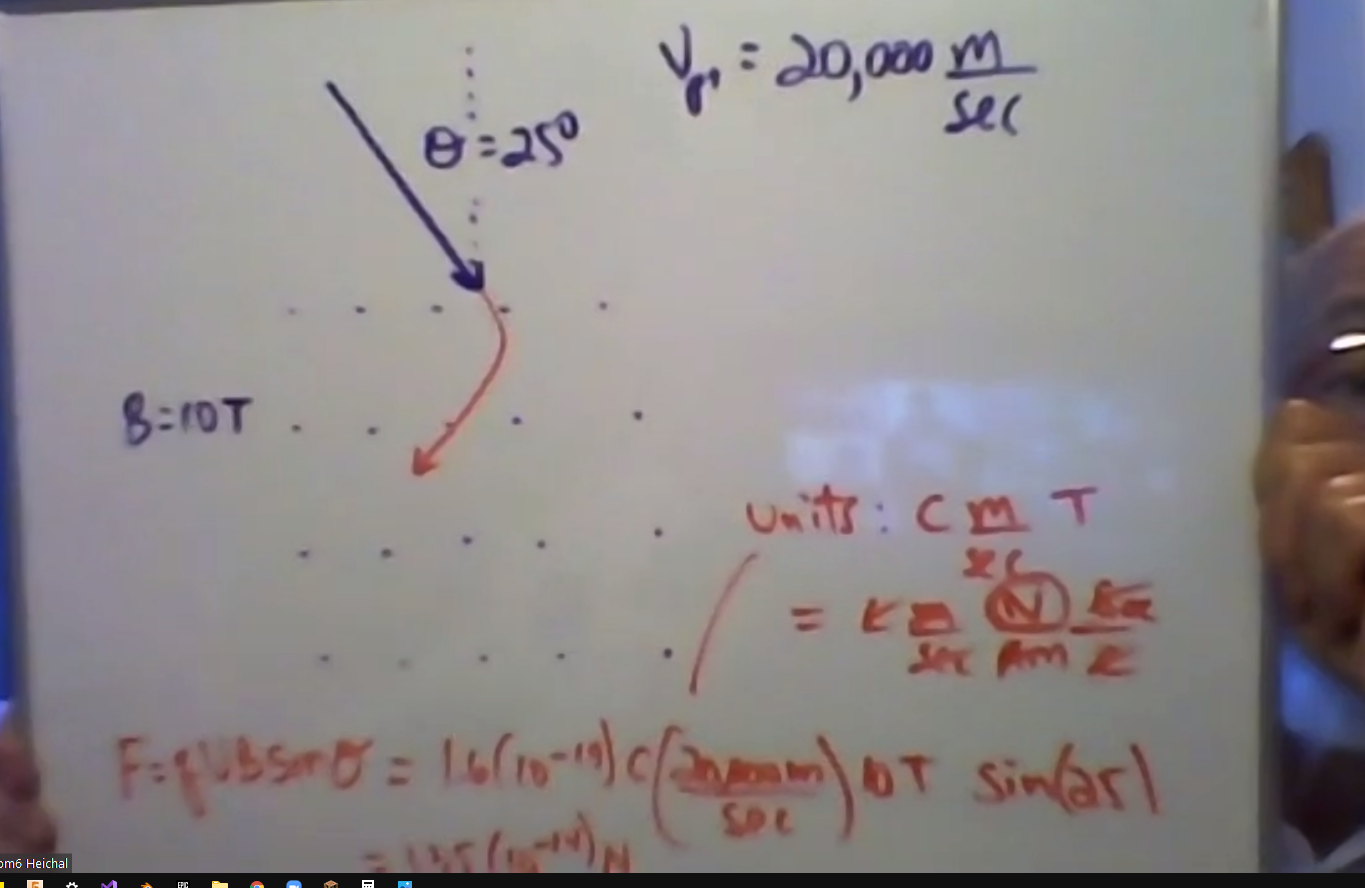 V_pr = 20,000 m/sec
θ = 25°
B=10T
Units: C m/sec T
= C m/sec N/Am
F=qVBsinθ = 1.6(10^-19) C (20,000m/sec) 10T sin(25)
= 1.35(10^-14) N
om6 Heichal